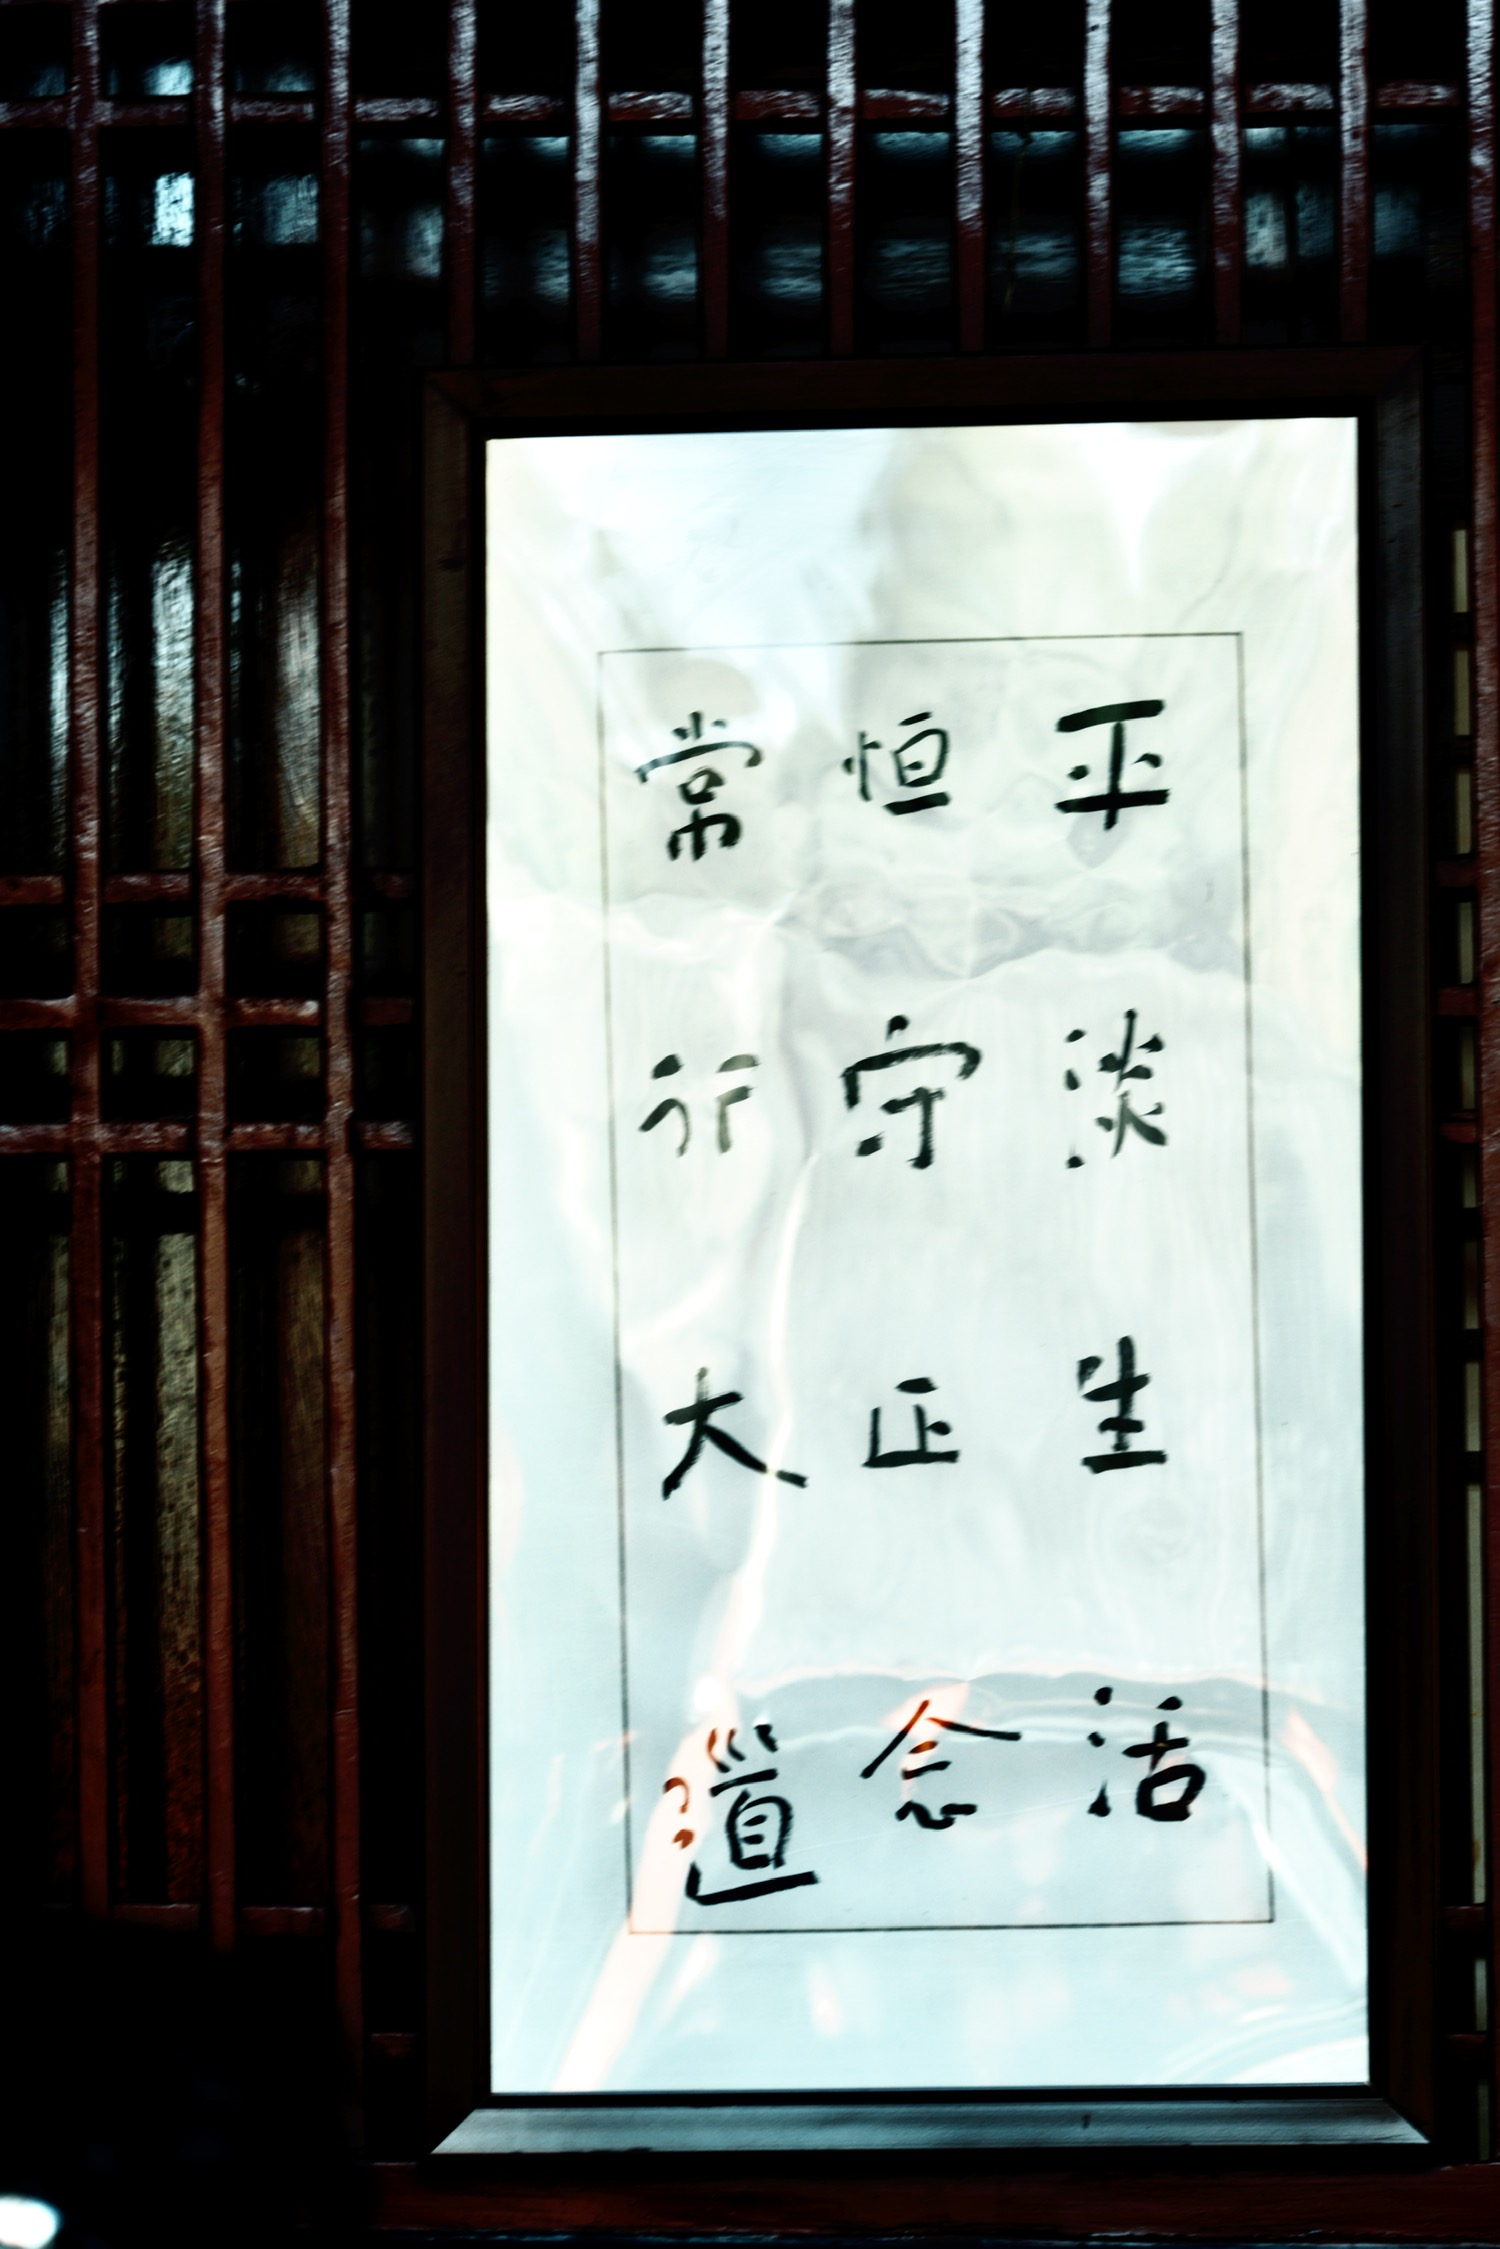 平淡生活
恒守正念
常行大道